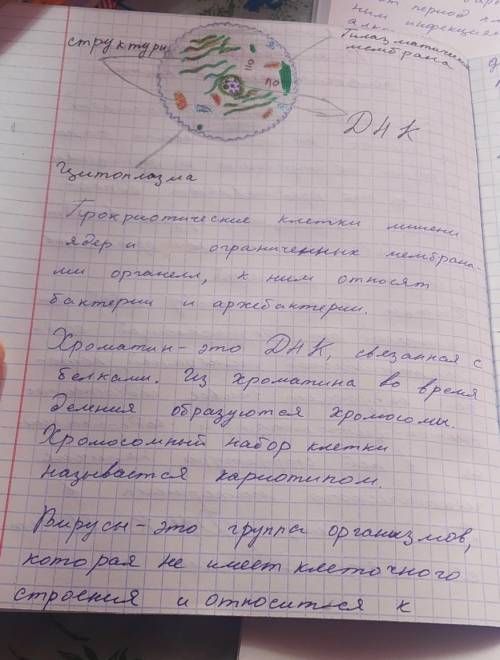 структуры
Плазматическая
мембрана
по
по
ДНК
Цитоплазма
Прокриотические клетки лишени
ядер и ограниченных мембрана-
ми органелл, к ним относят
бактерии и архебактерии.
Хроматин - это ДНК, связанная с
белками. Из хроматина во время
деления образуются хромосомы.
Хромосомный набор клетки
называется кариотипом.
Вирусы - это группа организмов,
которая не имеет клеточного
строения и относиться к
период
ним инфекциям